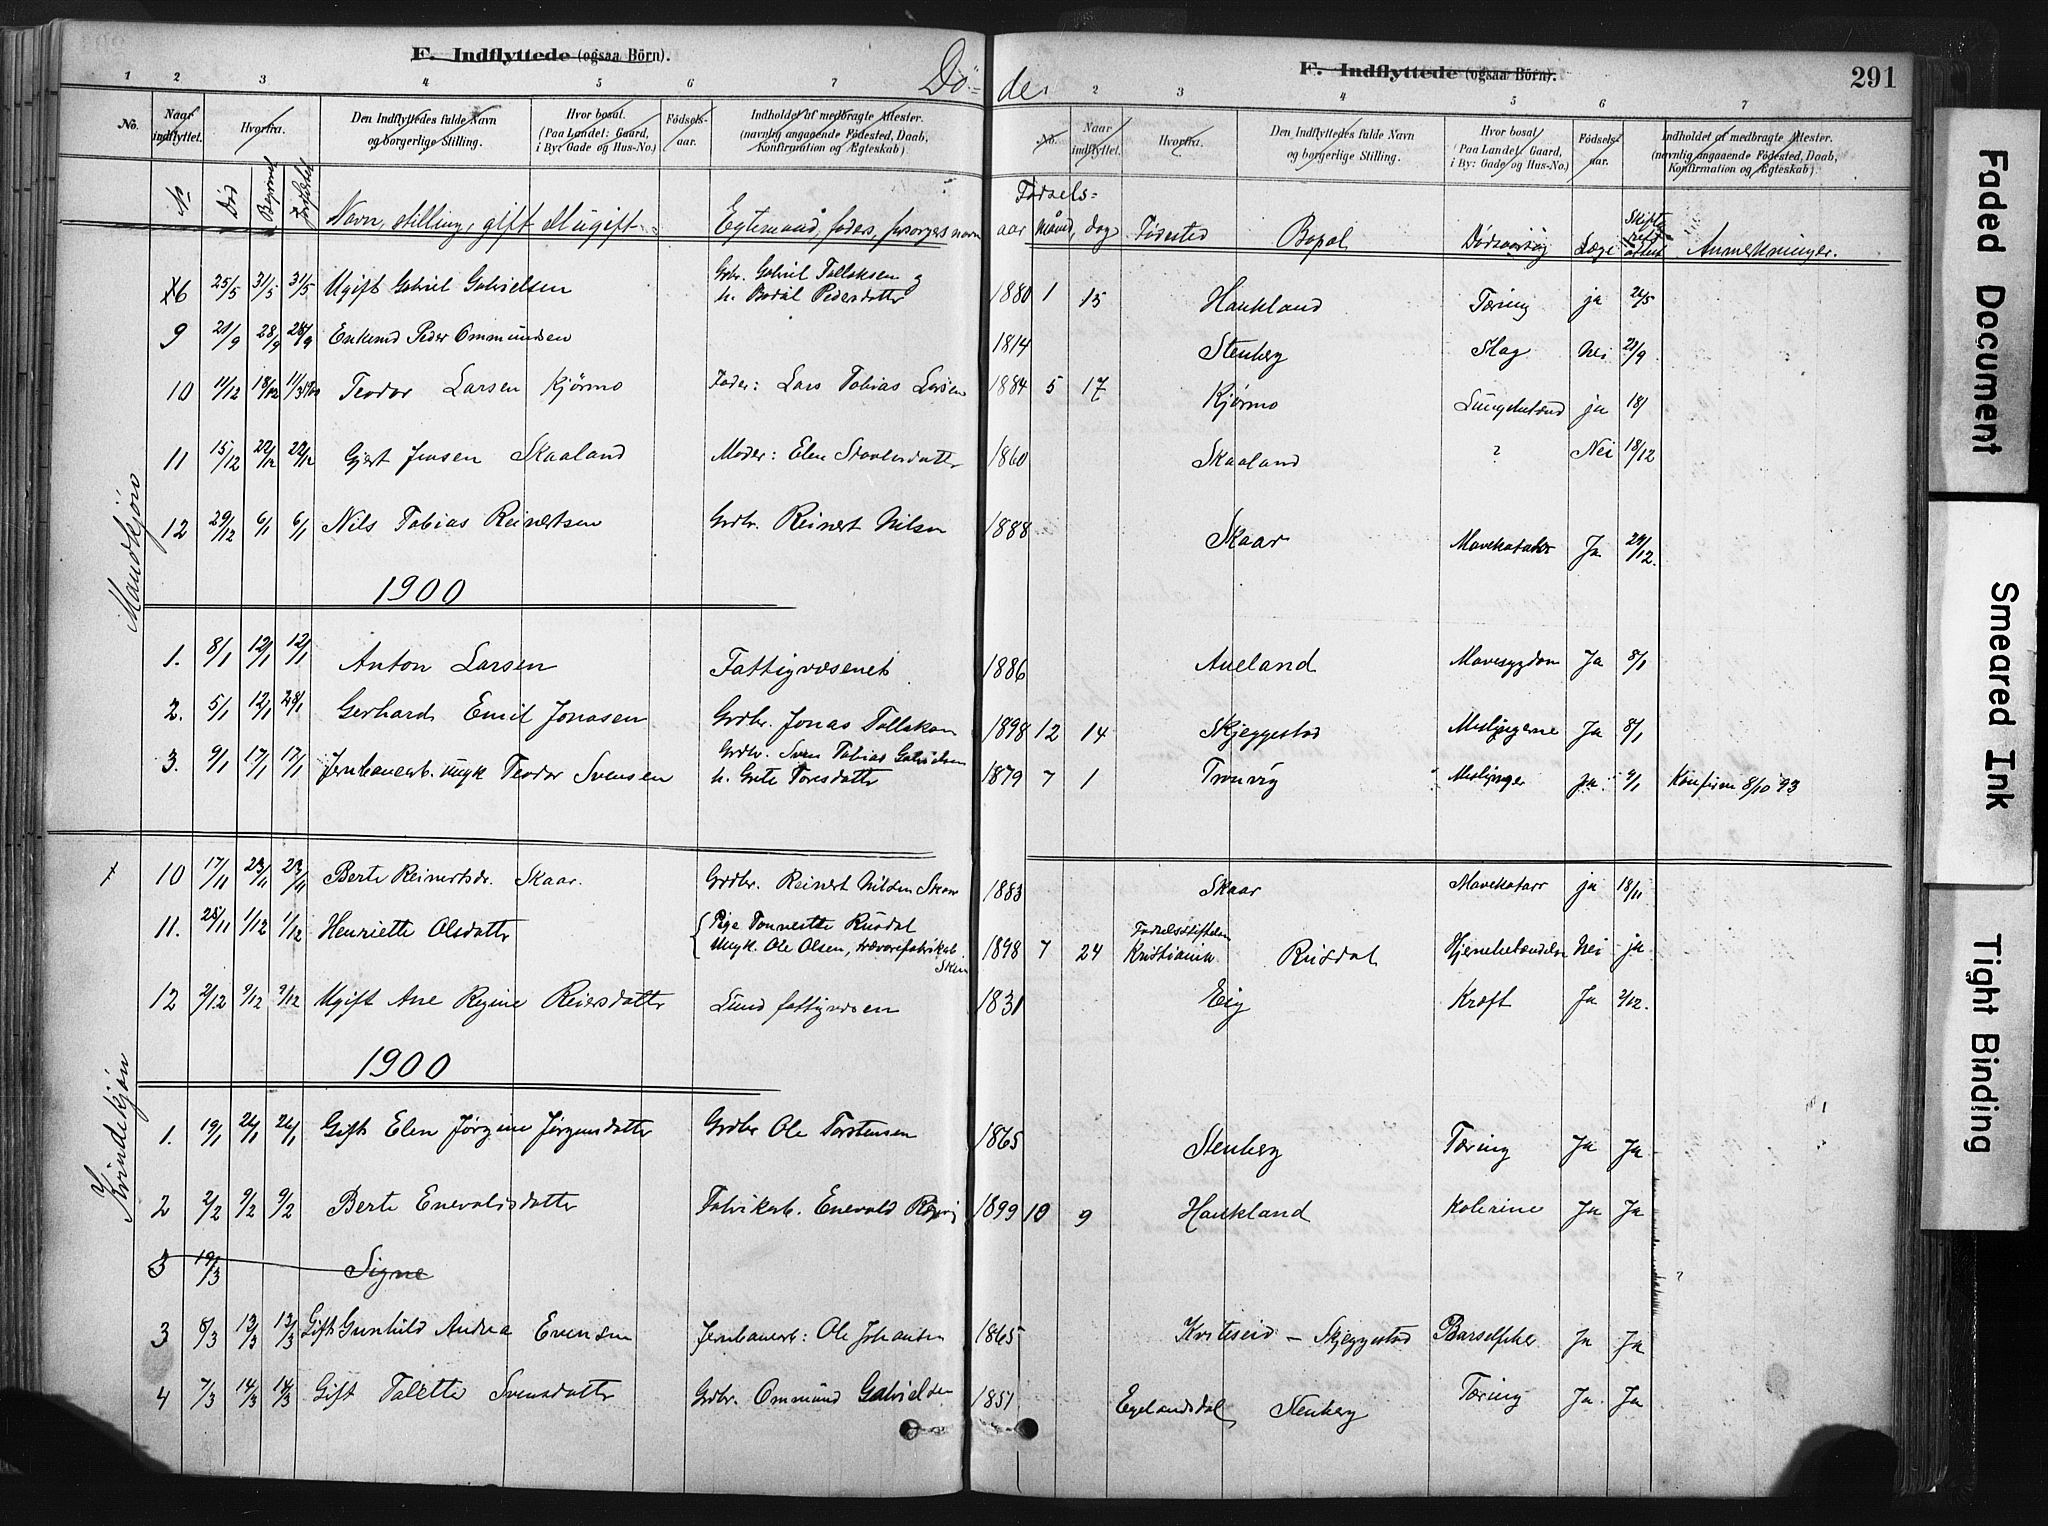 F. Indflyttede (ogsaa Börn). Dö= de. F. Indflyttede (ogsaa Börn). 291
1 2 3 4 5 6 7 2 3 4 5 6 7
No. Naar indflyttet. Hvorfra. Den Indflyttedes fulde Navn og borgerlige Stilling. Hvor bosat. (Paa Landet: Gaard, i By: Gade og Hus-No.) Födsels-aar. Indholdet af medbragte Attester. (navnlig angaaende Födested, Daab, Konfirmation og Ægteskab)
No. Naar indflyttet. Hvorfra. Den Indflyttedes fulde Navn og borgerlige Stilling. Hvor bosat (Paa Landet: Gaard, i By: Gade og Hus-No.) Födsels-aar. Indholdet af medbragte Attester. (navnlig angaaende Födested, Daab, Konfirmation og Ægteskab)
No Död Begravet Navn, stilling, gift el. ugift. Egtemand, faders, forsørgers navn Fødsels- aar maaned, dag Fødested Bopæl Dødsaarsag Læge Anmerkninger.
Mandkjøn
6 25/5 31/5 31/5 Ugift Gabriel Gabrielsen Grbr. Gabriel Tollaksen og h. Bodil Pedersdatter 1880 1 15 Haukland Tæring ja 26/5
9 21/9 28/9 28/9 Enkemd Peder Ommundsen 1814 Stenberg Slag Nei 21/9
10 11/12 18/12 Teodor Larsen Kjørmo Fader: Lars Tobias Larsen 1884 5 17 Kjørmo ja 18/
11 15/12 22/12 22/12 Gjert Jensen Skaaland Moder: Elen 1860 Skaaland ? Nei 18/12
12 29/12 6/1 6/1 Nils Tobias Reinertsen Grdbr. Reinert Nilsen 1888 Skaar Mavekatarr Ja 29/12.
1900
1. 8/1 12/1 12/1 Anton Larsen Fattigvæsenet 1886 Aueland Mavesygdom Ja 8/1
2. 5/1 12/1 28/1 Gerhard Emil Jonasen Grdbr. Jonas Tollaksen 1898 12 14 Skjeggestad Meslingerne Ja 8/1
3. 9/1 17/1 17/1 Jernbanearb. ungk Teodor Svensen Grdbr. Sven Tobias Gabrielsen h. Grete Toresdatter 1879 7 1 Tronvig Meslinger ja 9/1 Konfirm 8/10 93
Kvindekjøn
10 17/11 23/11 23/11 Berte Reinertsdr. Skaar. Grdbr. Reinert Nilsen Skaar 1883 Skaar Mavekatarr ja 18/11
11. 25/11 1/12 1/12 Henriette Olsdatter Pige Tonnette Rusdal Ungk. Ole Olsen, trævarefabrikarb. Skien 1898 7 24 Fødselsstiftelsen Kristiania Rusdal Hjernebetændelse Nei ja
12 2/12 9/12 9/12 Ugift Ane Regine Reiersdatter Lund fattigvæsen 1831 Eig Kræft Ja 2/12.
1900
1. 19/1 26/1 26/1 Gift Elen Jørgine Jørgensdatter Grdbr Ole Torstensen 1865 Stenberg Tæring Ja Ja
2 2/2 9/2 9/2 Berte Enevaldsdatter Fabrikarb. Enevald 1899 10 9 Haukland Kolerine Ja Ja
3 19/3 Signe
3 8/3 13/3 13/3 Gift Gunhild Andrea Evensen Jernbanearb: Ole Johansen 1865 Kviteseid - Skjeggestad Barselfeber Ja Ja
4 7/3 14/3 14/3 Gift Talette Svensdatter Grdbr. Ommund Gabrielsen 1851 Egelandsdal Stenberg Tæring Ja Ja
Faded Document
Smeared Ink
Tight Binding